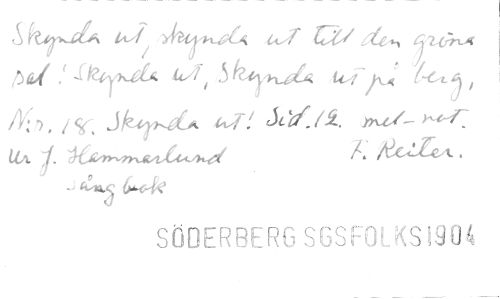 Skynda ut, skynda ut till den gröna
sal! Skynda ut, Skynda ut på berg,
N:r. 18. Skynda ut! Sid. 12. mel-not.
Ur J. Hammarlund F. Reiter.
sångbok
SÖDERBERG SGSFOLKS1904